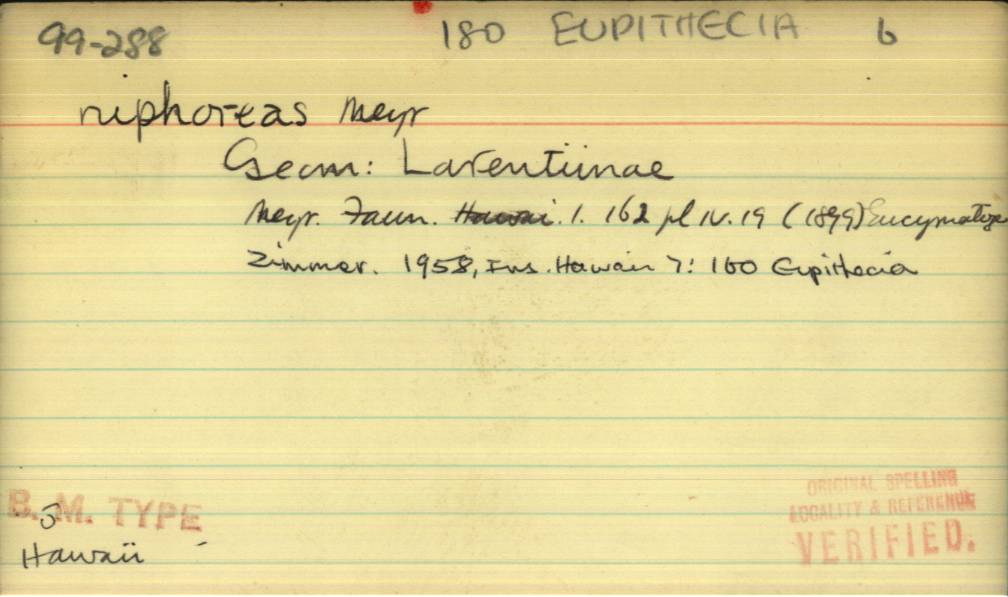 99-288 180 EUPITHECIA 6
niphoreas Meyr
Geom: Larentiinae
Meyr. Faun. Hawai. 1. 162 pl IV. 19 (1899) Eucymatoge
Zimmer. 1958, Ins. Hawaii 7: 160 Eupithecia
ORIGINAL SPELLING
LOCALITY & REFERENCE
VERIFIED.
B. M. TYPE
Hawaii